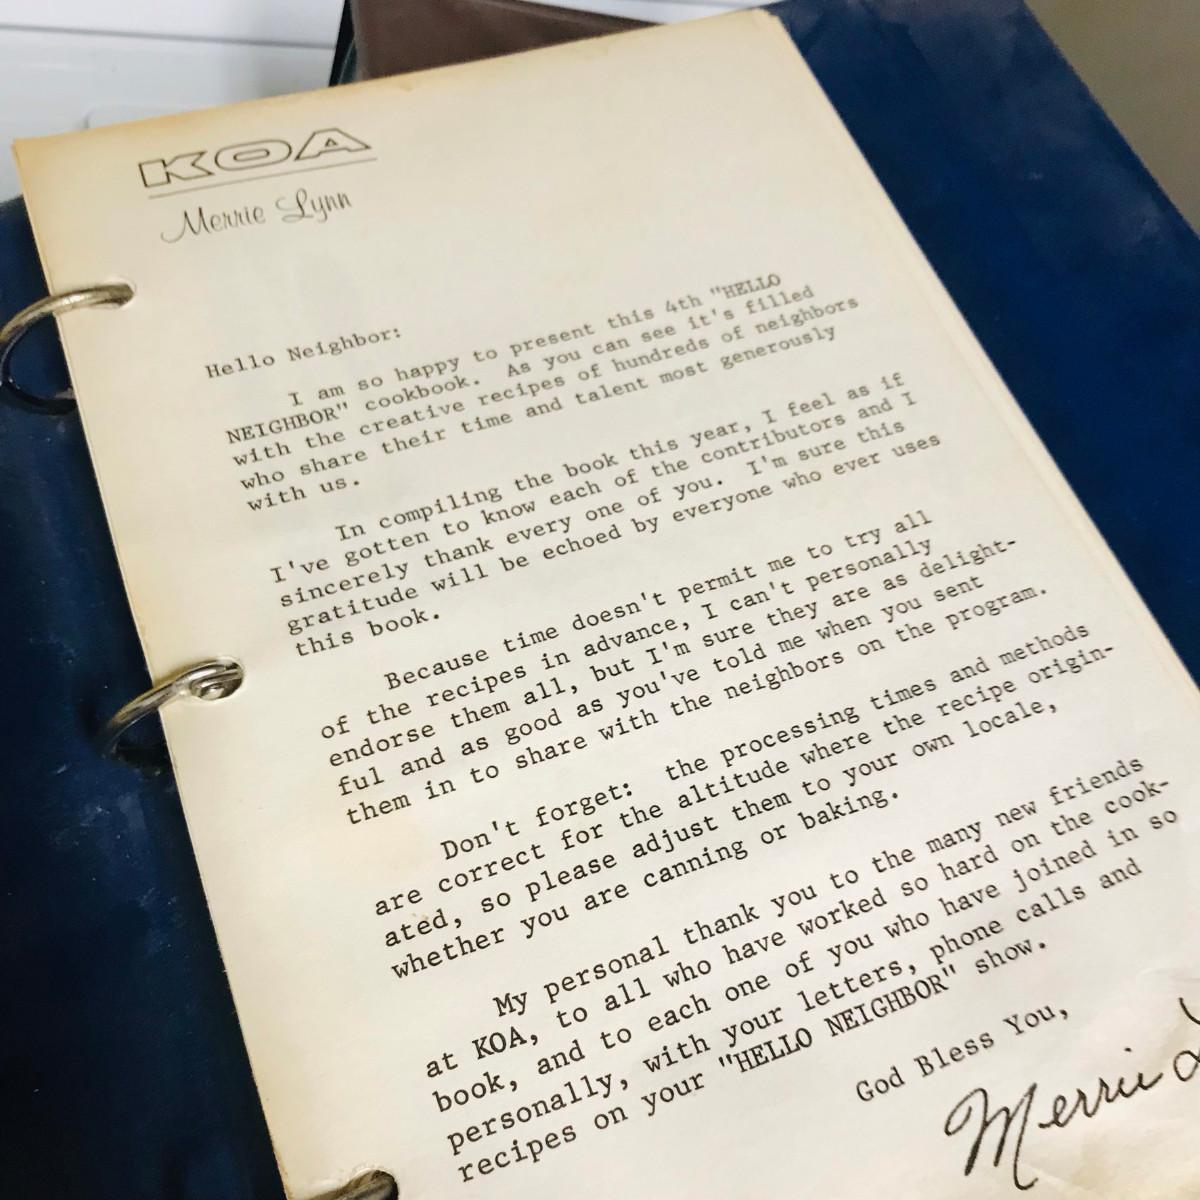 KOA
Merrie Lynn
Hello Neighbor:
I am so happy to present this 4th "HELLO
NEIGHBOR" cookbook. As you can see it's filled
with the creative recipes of hundreds of neighbors
who share their time and talent most generously
with us.
In compiling the book this year, I feel as if
I've gotten to know each of the contributors and I
sincerely thank every one of you. I'm sure this
gratitude will be echoed by everyone who ever uses
this book.
Because time doesn't permit me to try all
of the recipes in advance, I can't personally
endorse them all, but I'm sure they are as delight-
ful and as good as you've told me when you sent
them in to share with the neighbors on the program.
Don't forget: the processing times and methods
are correct for the altitude where the recipe origin-
ated, so please adjust them to your own locale,
whether you are canning or baking.
My personal thank you to the many new friends
at KOA, to all who have worked so hard on the cook-
book, and to each one of you who have joined in so
personally, with your letters, phone calls and
recipes on your "HELLO NEIGHBOR" show.
God Bless You,
Merrie